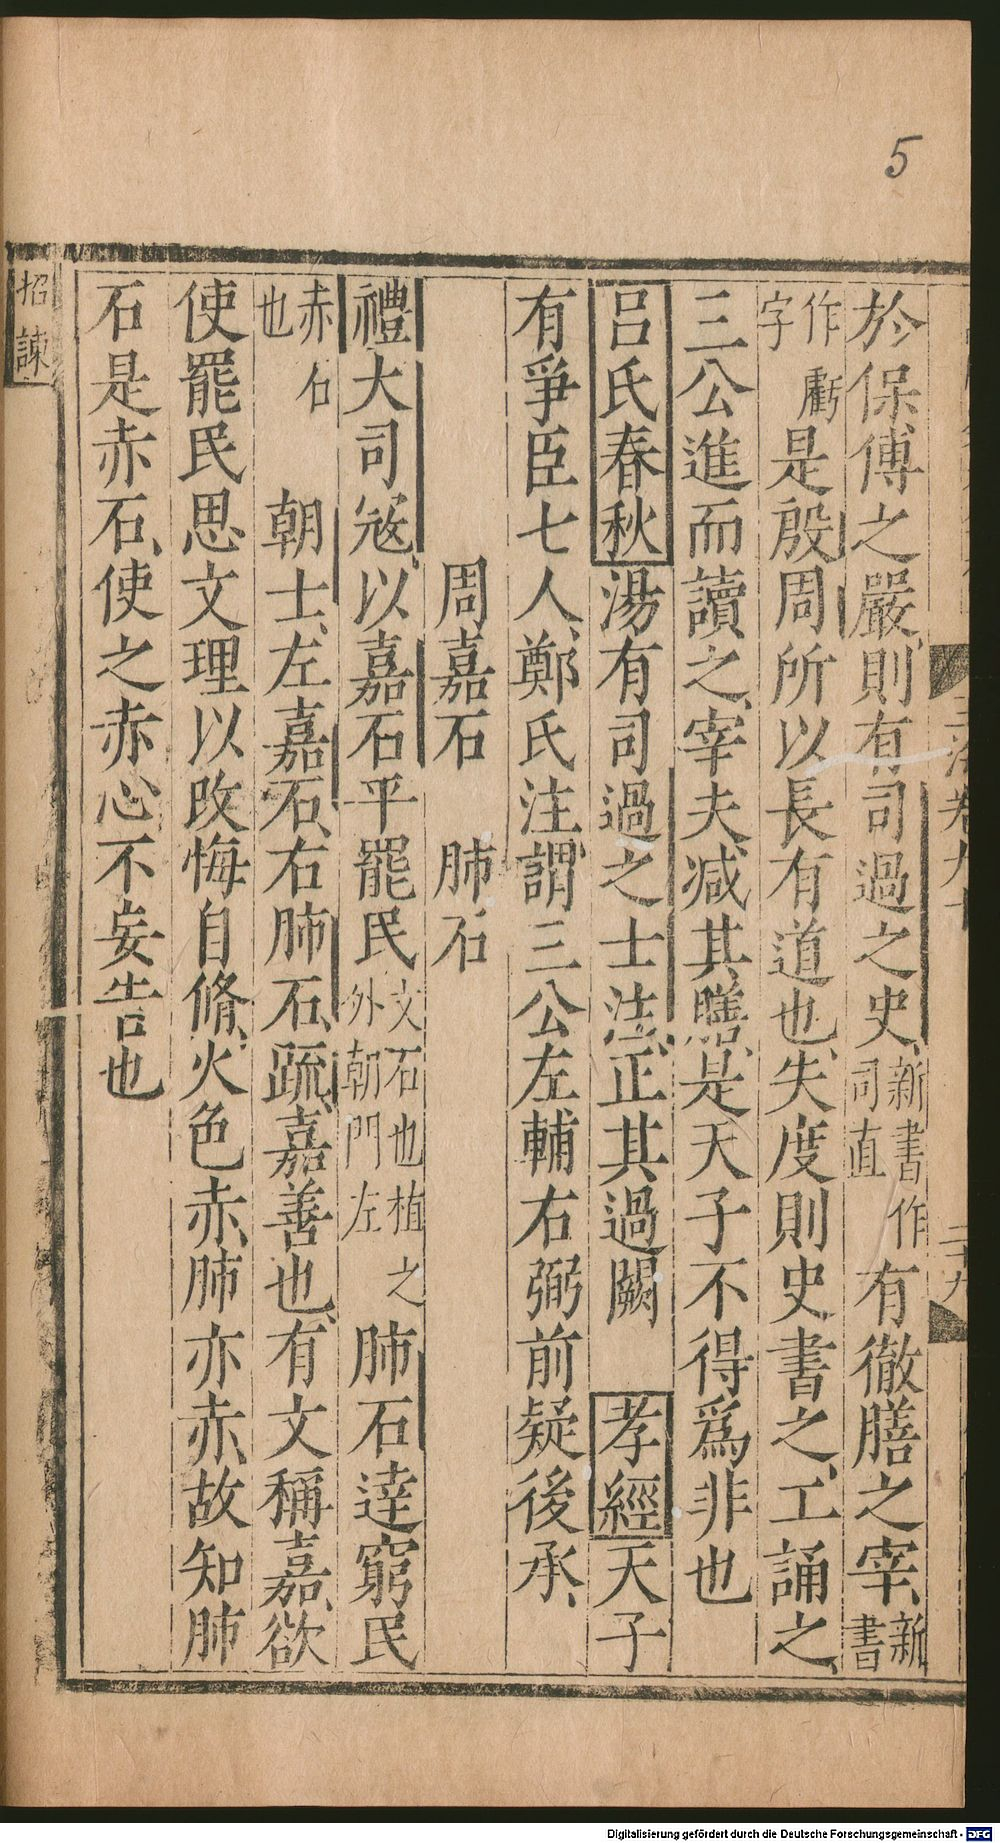 5
於保傅之嚴則有司過之史新書作司直有徹膳之宰新書
作虧字是殷周所以長有道也失度則史書之工誦之
三公進而讀之宰夫减其膳是天子不得爲非也
呂氏春秋湯有司過之士法正其過闕 孝經天子
有爭臣七人鄭氏注謂三公左輔右弼前疑後承
周嘉石 肺石
禮大司寇以嘉石平罷民文石也植之外朝門左肺石逹窮民
赤石也 朝士左嘉石右肺石疏嘉善也有文稱嘉欲
使罷民思文理以攺悔自脩火色赤肺亦赤故知肺
石是赤石使之赤心不妄告也
招諫
卷九十
二十九
Digitalisierung gefördert durch die Deutsche Forschungsgemeinschaft - DFG